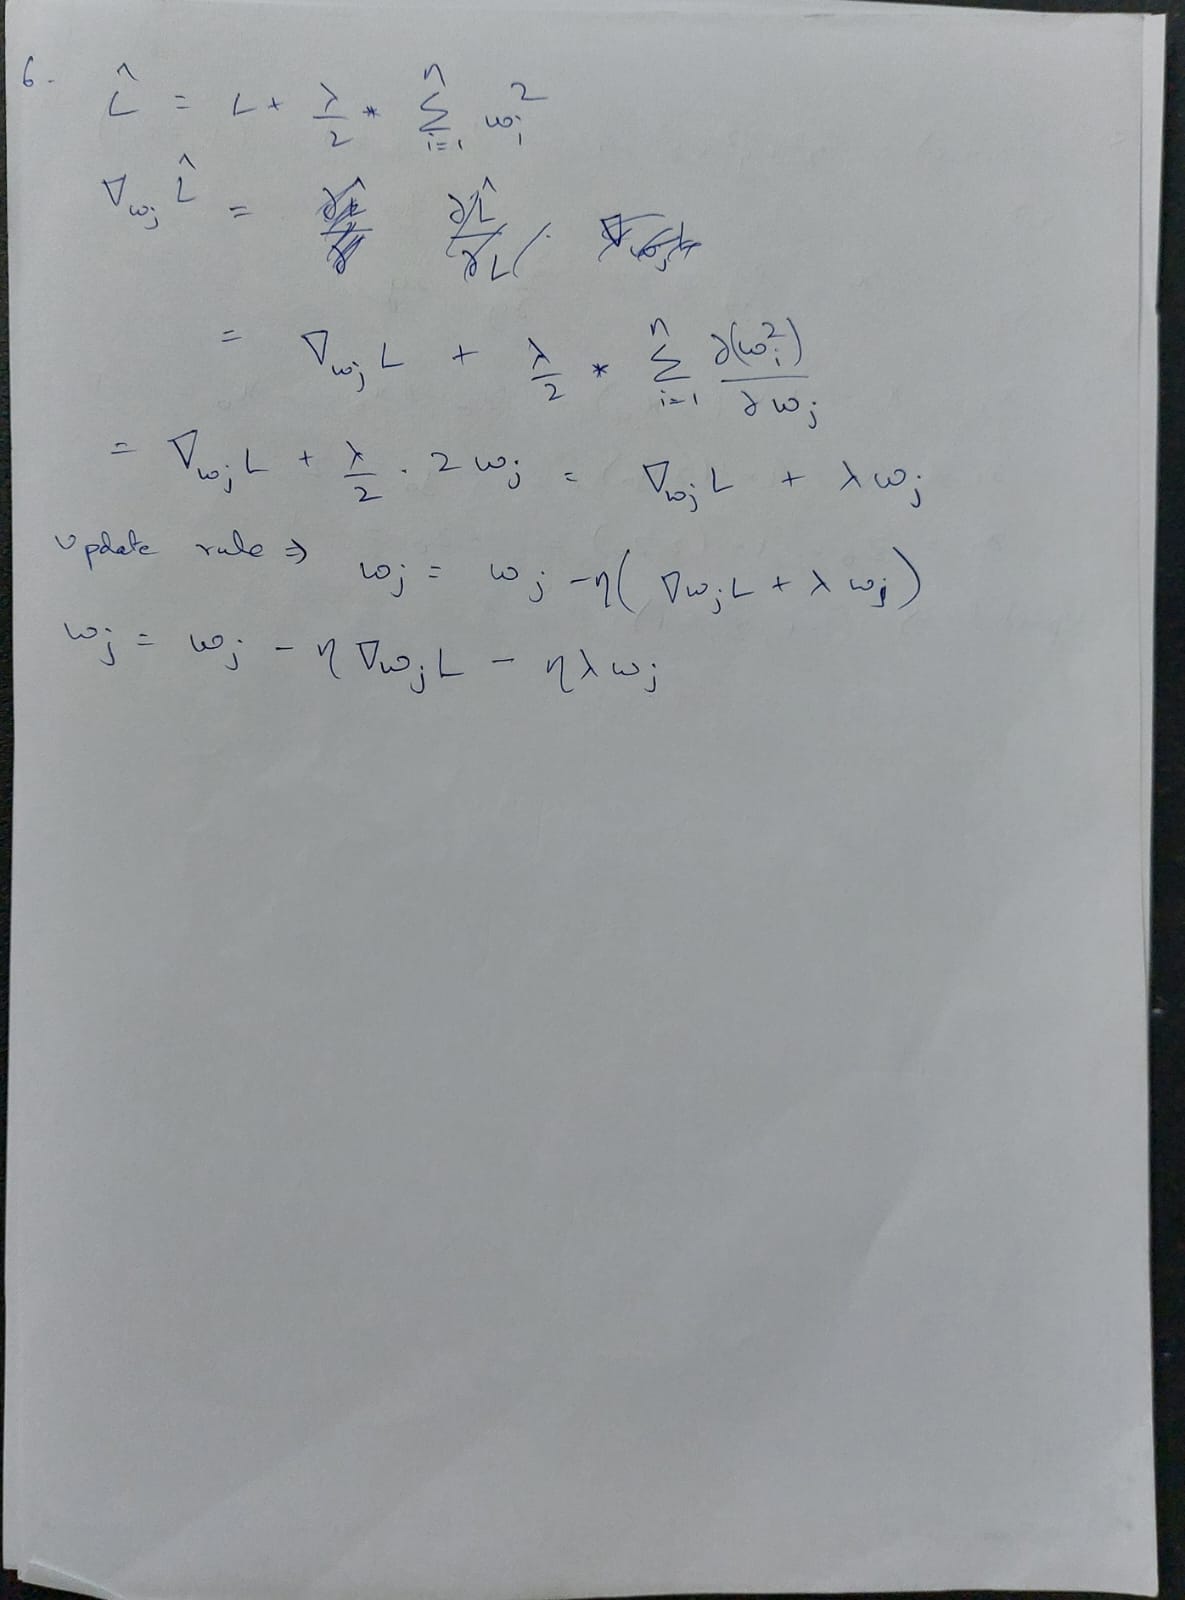 6. L̂ = L + λ/2 * Σ_{i=1}^{n} w_i^2
∇_{w_j} L̂ =
= ∇_{w_j} L + λ/2 * Σ_{i=1}^{n} ∂(w_i^2)/∂w_j
= ∇_{w_j} L + λ/2 . 2 w_j = ∇_{w_j} L + λ w_j
Update rule ⇒ w_j = w_j - η( ∇_{w_j} L + λ w_j )
w_j = w_j - η ∇_{w_j} L - η λ w_j